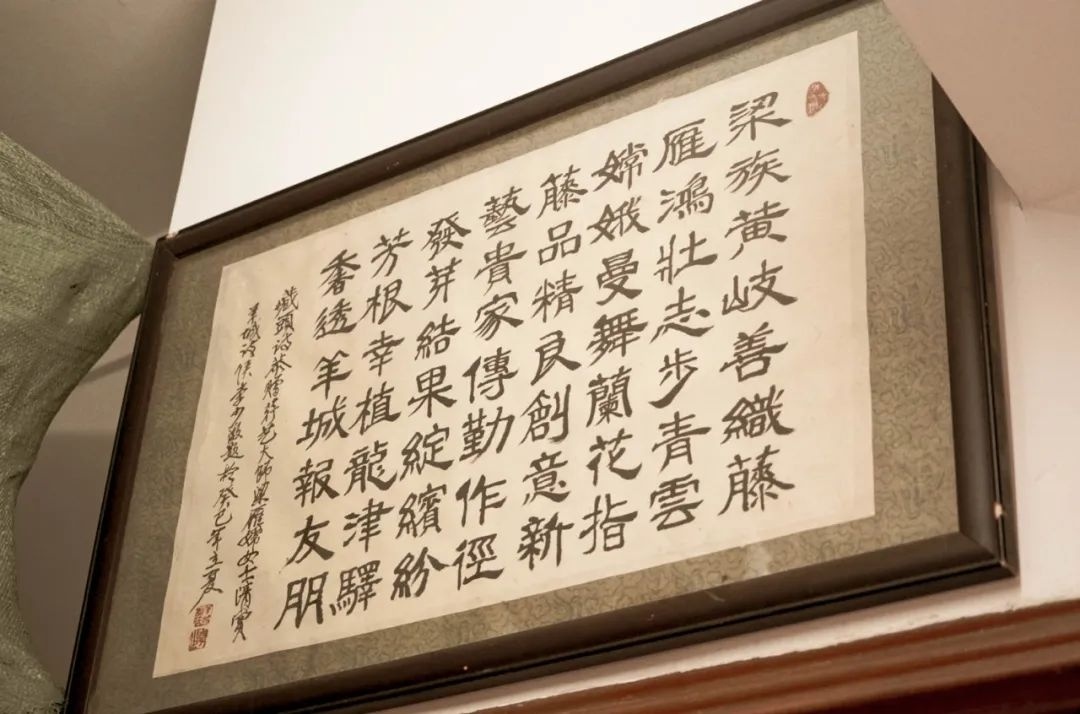 梁族黄岐善織藤
雁鴻壯志步青雲
嫦娥曼舞蘭花指
藤品精良創意新
藝貴家傳勤作徑
發芽結果綻繽紛
芳根幸植龍津驛
香透羊城報友朋
藏頭詩恭贈籐艺大師梁雁嫦女士清賞
羊城詩侠李少題於癸巳年立夏